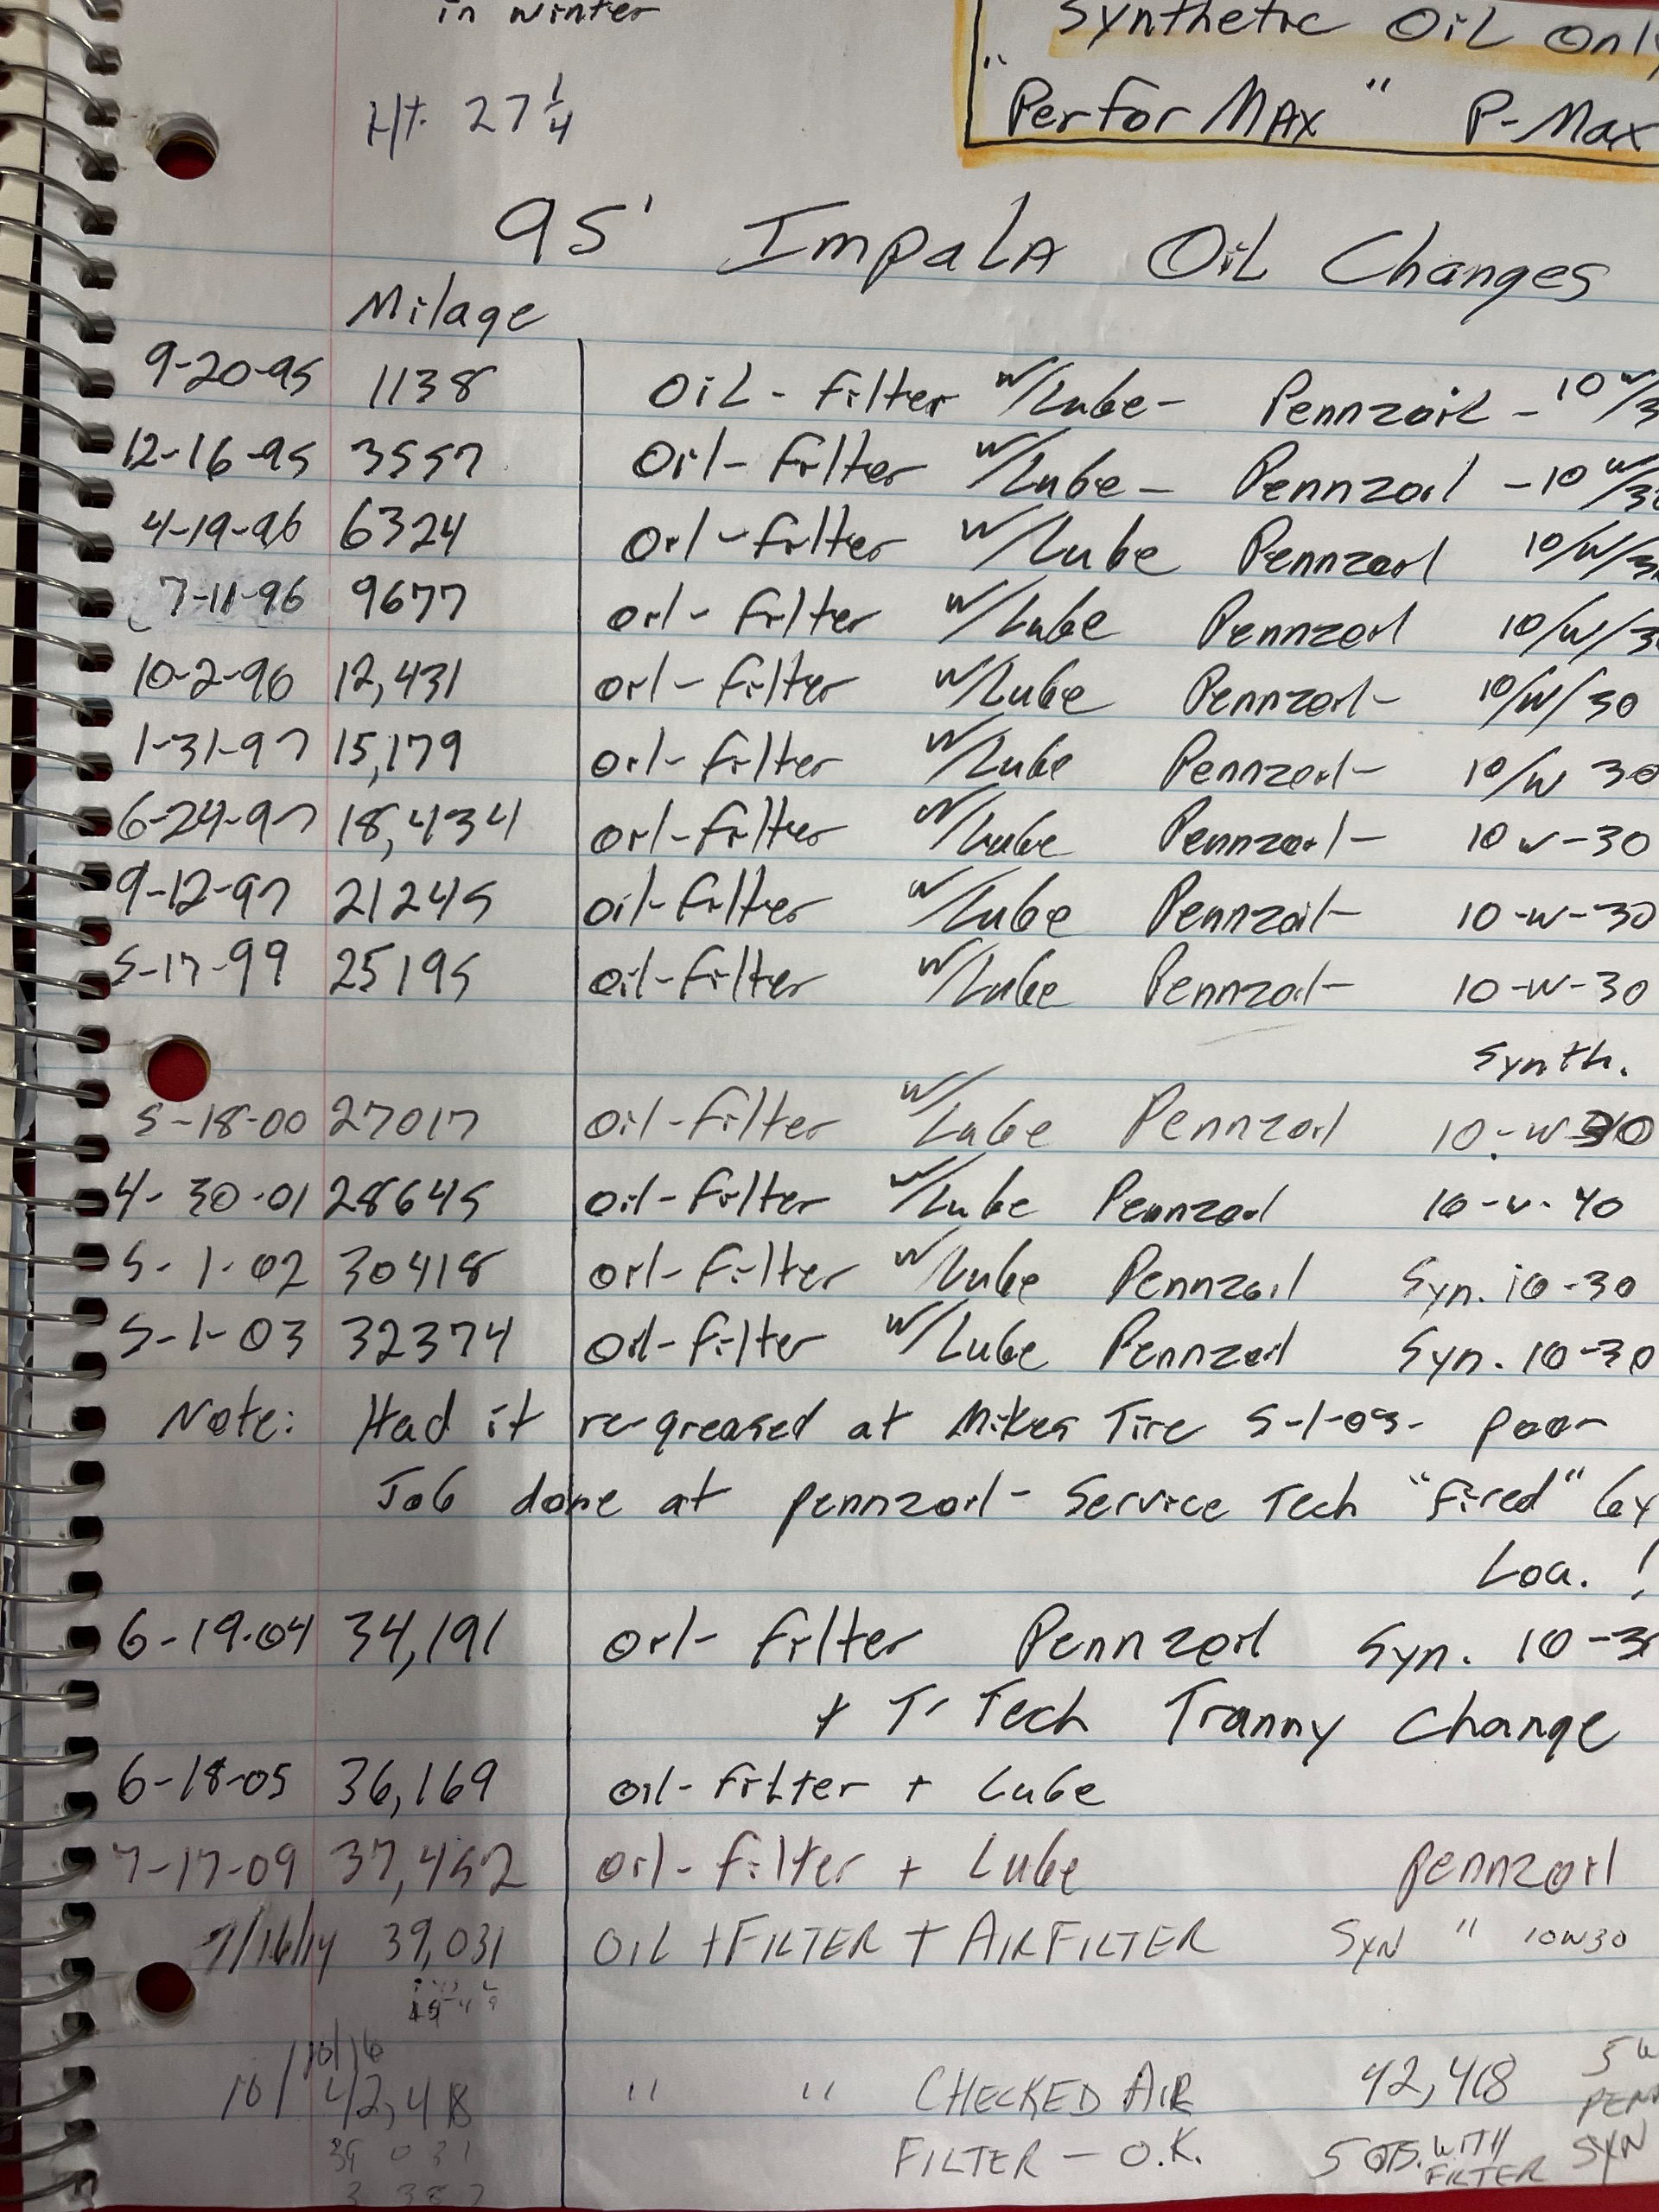 in winter
Synthetic Oil Only
"PerforMAX" P-Max
Ht. 27 1/4
95' Impala Oil Changes
Milage
9-20-95 1138 Oil-filter w/Lube- Pennzoil - 10w/3
12-16-95 3557 Oil-filter w/Lube- Pennzoil - 10w/30
4-19-96 6324 Oil-filter w/Lube Pennzoil 10/W/30
7-11-96 9677 oil-filter w/Lube Pennzoil 10/W/30
10-2-96 12,431 oil-filter w/Lube Pennzoil- 10/W/30
1-31-97 15,179 oil-filter w/Lube Pennzoil- 10/W 30
6-24-97 18,434 oil-filter w/Lube Pennzoil- 10 w-30
9-12-97 21245 oil-filter w/Lube Pennzoil- 10-w-30
5-17-99 25195 oil-filter w/Lube Pennzoil- 10-W-30
Synth.
5-18-00 27017 oil-filter w/Lube Pennzoil 10-W
4-30-01 28645 oil-filter w/Lube Pennzoil 10-W-40
5-1-02 30418 oil-filter w/Lube Pennzoil Syn. 10-30
5-1-03 32374 oil-filter w/Lube Pennzoil Syn. 10-30
Note: Had it re-greased at Mikes Tire 5-1-03- poor
Job done at pennzoil- Service Tech "fired" by
Lou. !
6-19-04 34,191 oil-filter Pennzoil Syn. 10-30
+ T-Tech Tranny Change
6-18-05 36,169 oil-filter + Lube
7-17-09 37,452 oil-filter + Lube pennzoil
7/16/14 39,031 OIL + FILTER + AIR FILTER SYN " 10W30
10/10/16
42,418 " " CHECKED AIR 42,418 5W
FILTER - O.K. 5 QTS. WITH FILTER SYN
39 031
3 387